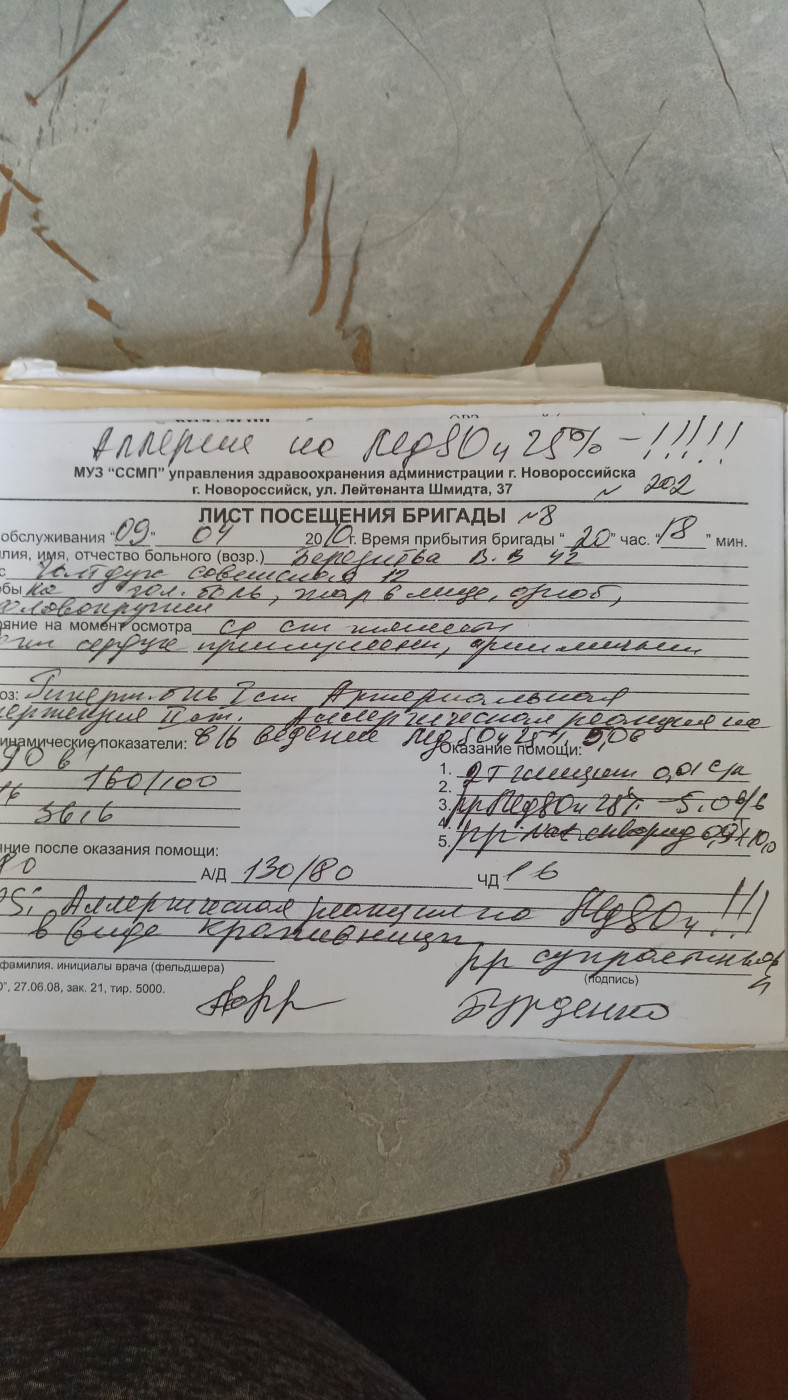 Аллергия на MgSO4 25% – !!!!!
МУЗ "ССМП" управления здравоохранения администрации г. Новороссийска
г. Новороссийск, ул. Лейтенанта Шмидта, 37
N 202
ЛИСТ ПОСЕЩЕНИЯ БРИГАДЫ N8
обслуживания "09" 04 2010г. Время прибытия бригады "20" час. "18" мин.
илия, имя, отчество больного (возр.) В. В 42
12
обы на гол. боль, жар в лице, озноб,
головокружен
ояние на момент осмотра ср ст тяжести
сердца приглушены, ритмичны
оз: Гиперт. Iст Артериальная
гипертензия IIст. Аллергическая реакция на
инамические показатели: в/в введение MgSO4 25% 5,0 в
Оказание помощи:
90 в'
160/100
36,6
1. 0,01 с/я
2.
3. рр MgSO4 25% – 5,0 в/в
5.
яние после оказания помощи:
А/Д 130/80 ЧД 16
DSi Аллергическая реакция на MgSO4 !!!
в виде крапивницы
рр супрастин
фамилия. инициалы врача (фельдшера)
(подпись)
0", 27.06.08, зак. 21, тир. 5000.
Бурденко